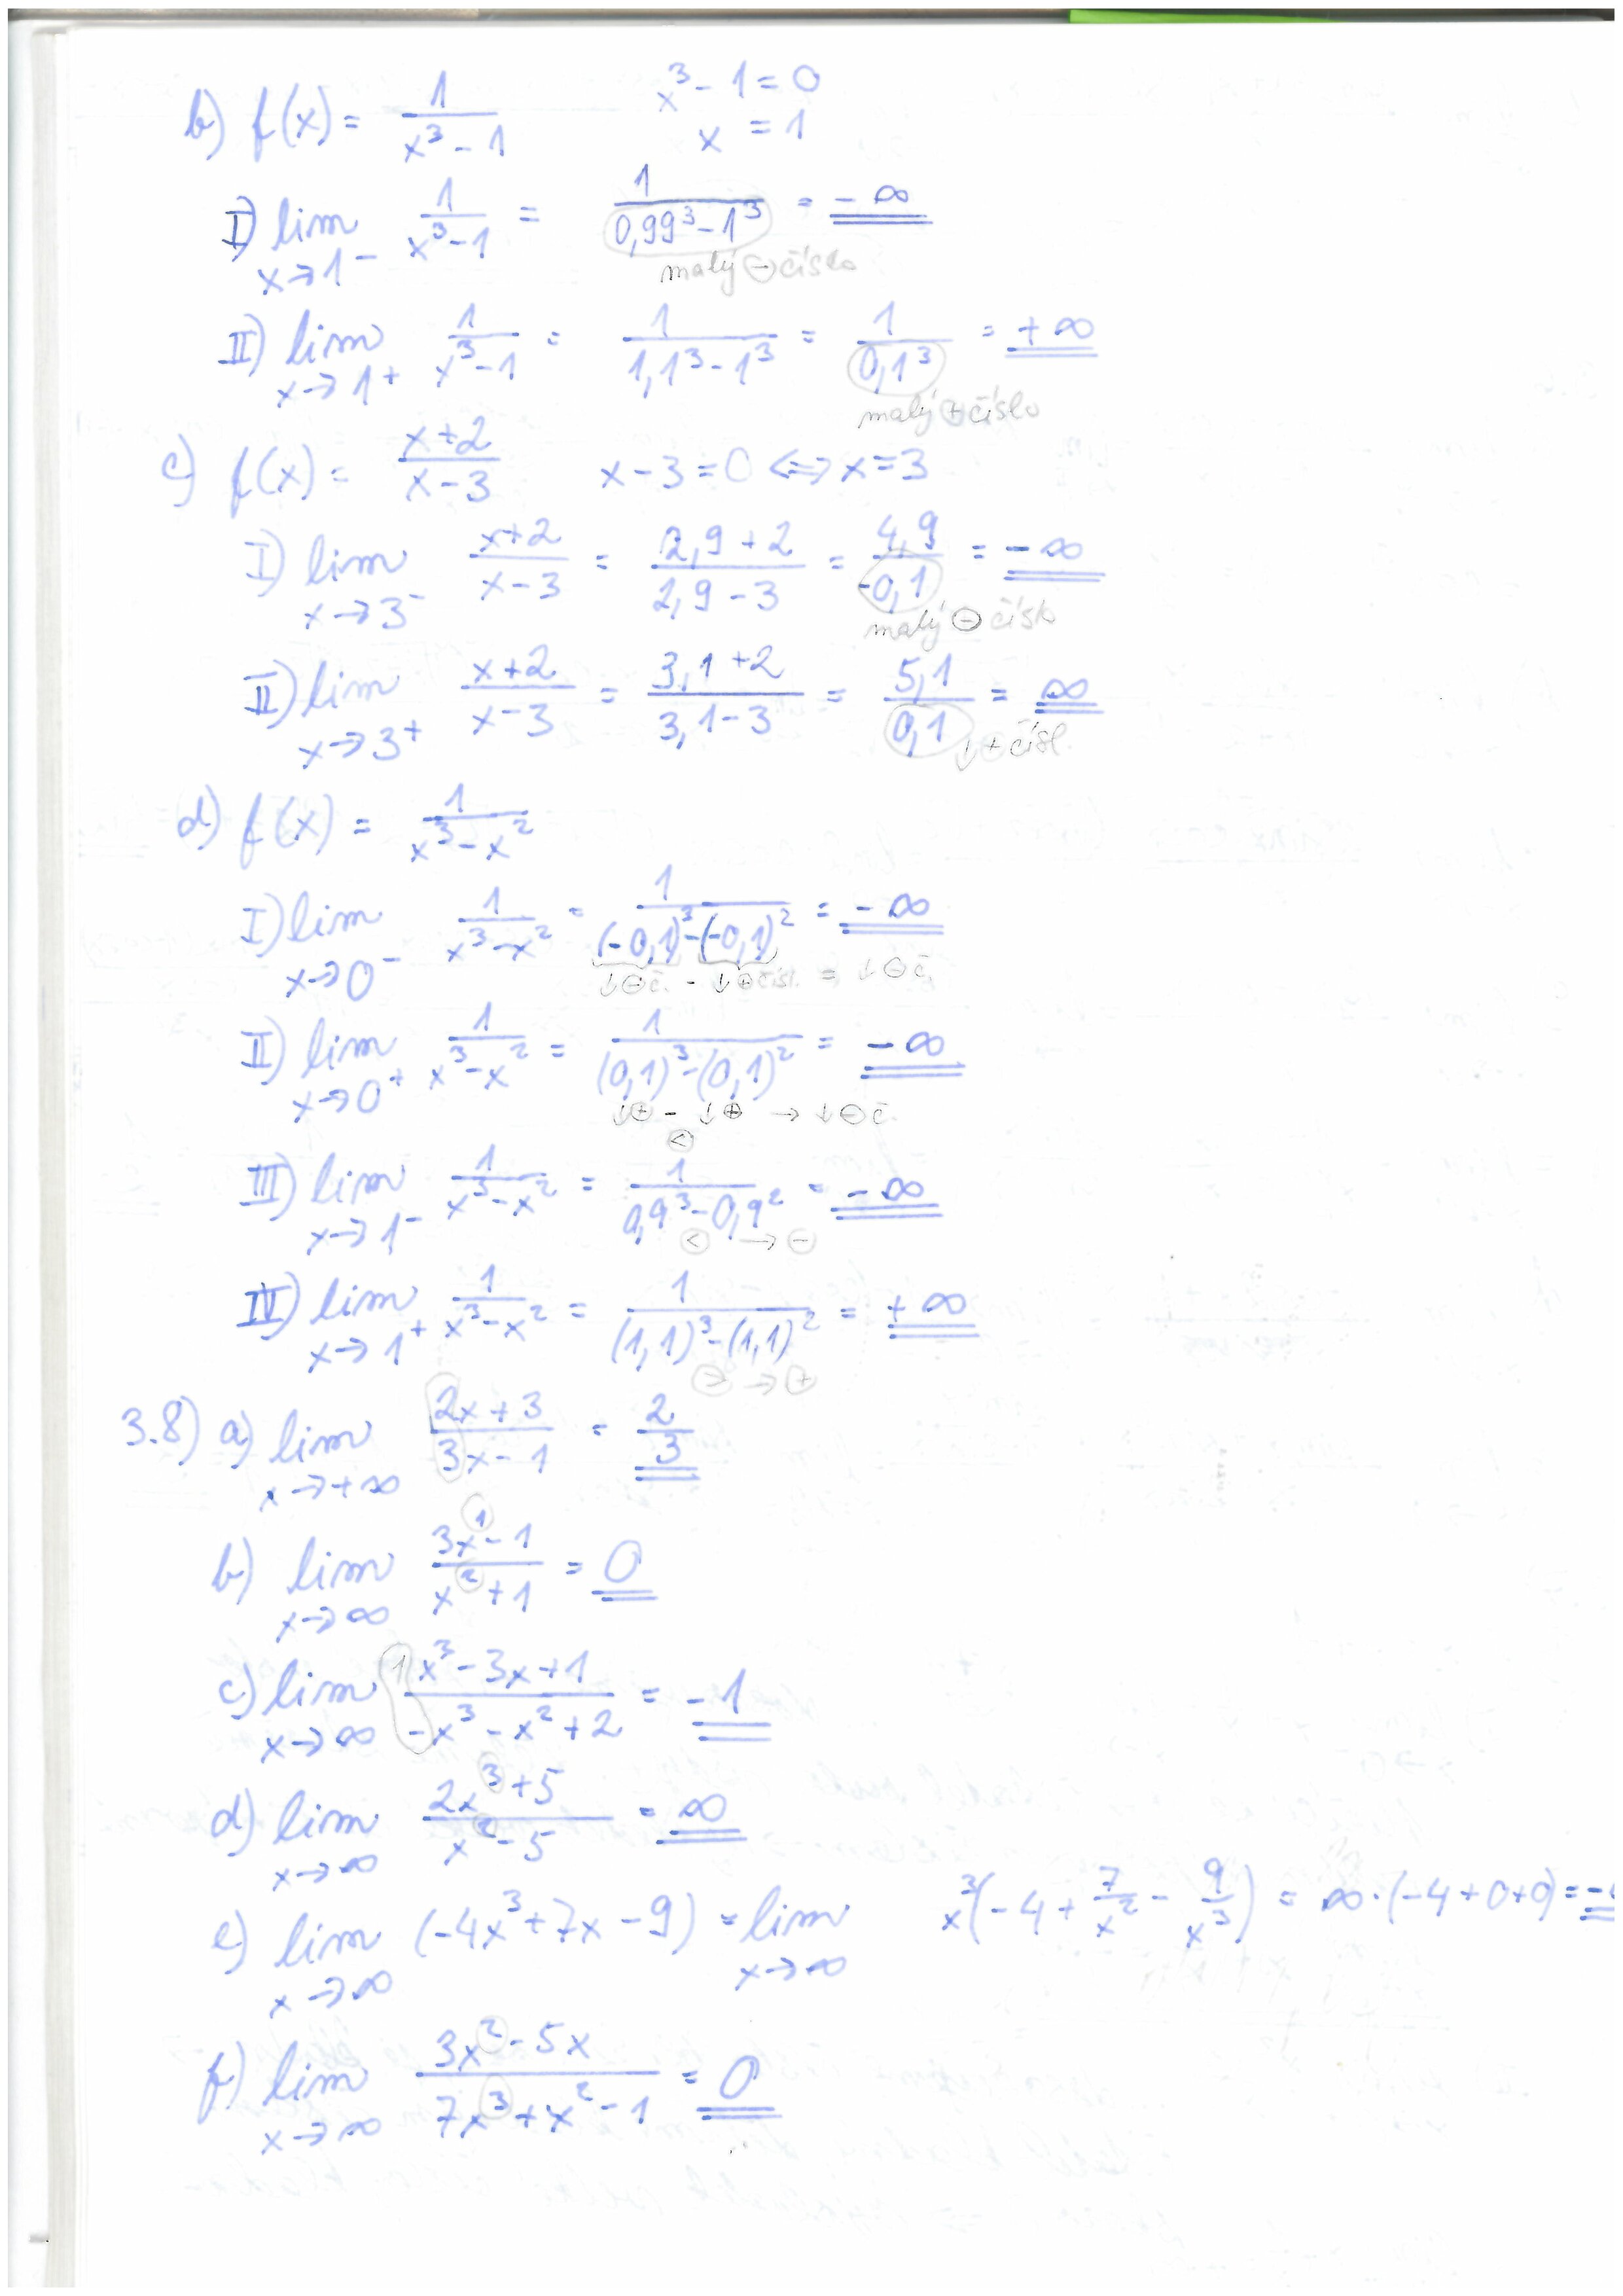 b) f(x) = 1/(x³ - 1)    x³ - 1 = 0
x = 1
I) lim x→1⁻ 1/(x³-1) = 1/(0,99³ - 1³) = - ∞
malý ⊖ číslo
II) lim x→1⁺ 1/(x³-1) = 1/(1,1³ - 1³) = 1/(0,1³) = + ∞
malý + číslo
c) f(x) = (x+2)/(x-3)    x - 3 = 0 ⟺ x = 3
I) lim x→3⁻ (x+2)/(x-3) = (2,9+2)/(2,9-3) = 4,9/(-0,1) = - ∞
malý ⊖ číslo
II) lim x→3⁺ (x+2)/(x-3) = (3,1+2)/(3,1-3) = 5,1/0,1 = ∞
↓ + čísl.
d) f(x) = 1/(x³ - x²)
I) lim x→0⁻ 1/(x³-x²) = 1/((-0,1)³-(-0,1)²) = - ∞
↓⊖č. - ↓⊕čísl. = ↓⊖č.
II) lim x→0⁺ 1/(x³-x²) = 1/((0,1)³-(0,1)²) = - ∞
↓⊕ - ↓⊕ → ↓⊖č.
<
III) lim x→1⁻ 1/(x³-x²) = 1/(0,9³-0,9²) = - ∞
< → ⊖
IV) lim x→1⁺ 1/(x³-x²) = 1/((1,1)³-(1,1)²) = + ∞
> → ⊕
3.8) a) lim x→+∞ (2x+3)/(3x-1) = 2/3
b) lim x→∞ (3x¹-1)/(x²+1) = 0
c) lim x→∞ (1x³-3x+1)/(-x³-x²+2) = -1
d) lim x→∞ (2x³+5)/(x²-5) = ∞
e) lim x→∞ (-4x³+7x-9) = lim x→∞ x³(-4 + 7/x² - 9/x³) = ∞·(-4+0+0) = -
f) lim x→∞ (3x²-5x)/(7x³+x²-1) = 0